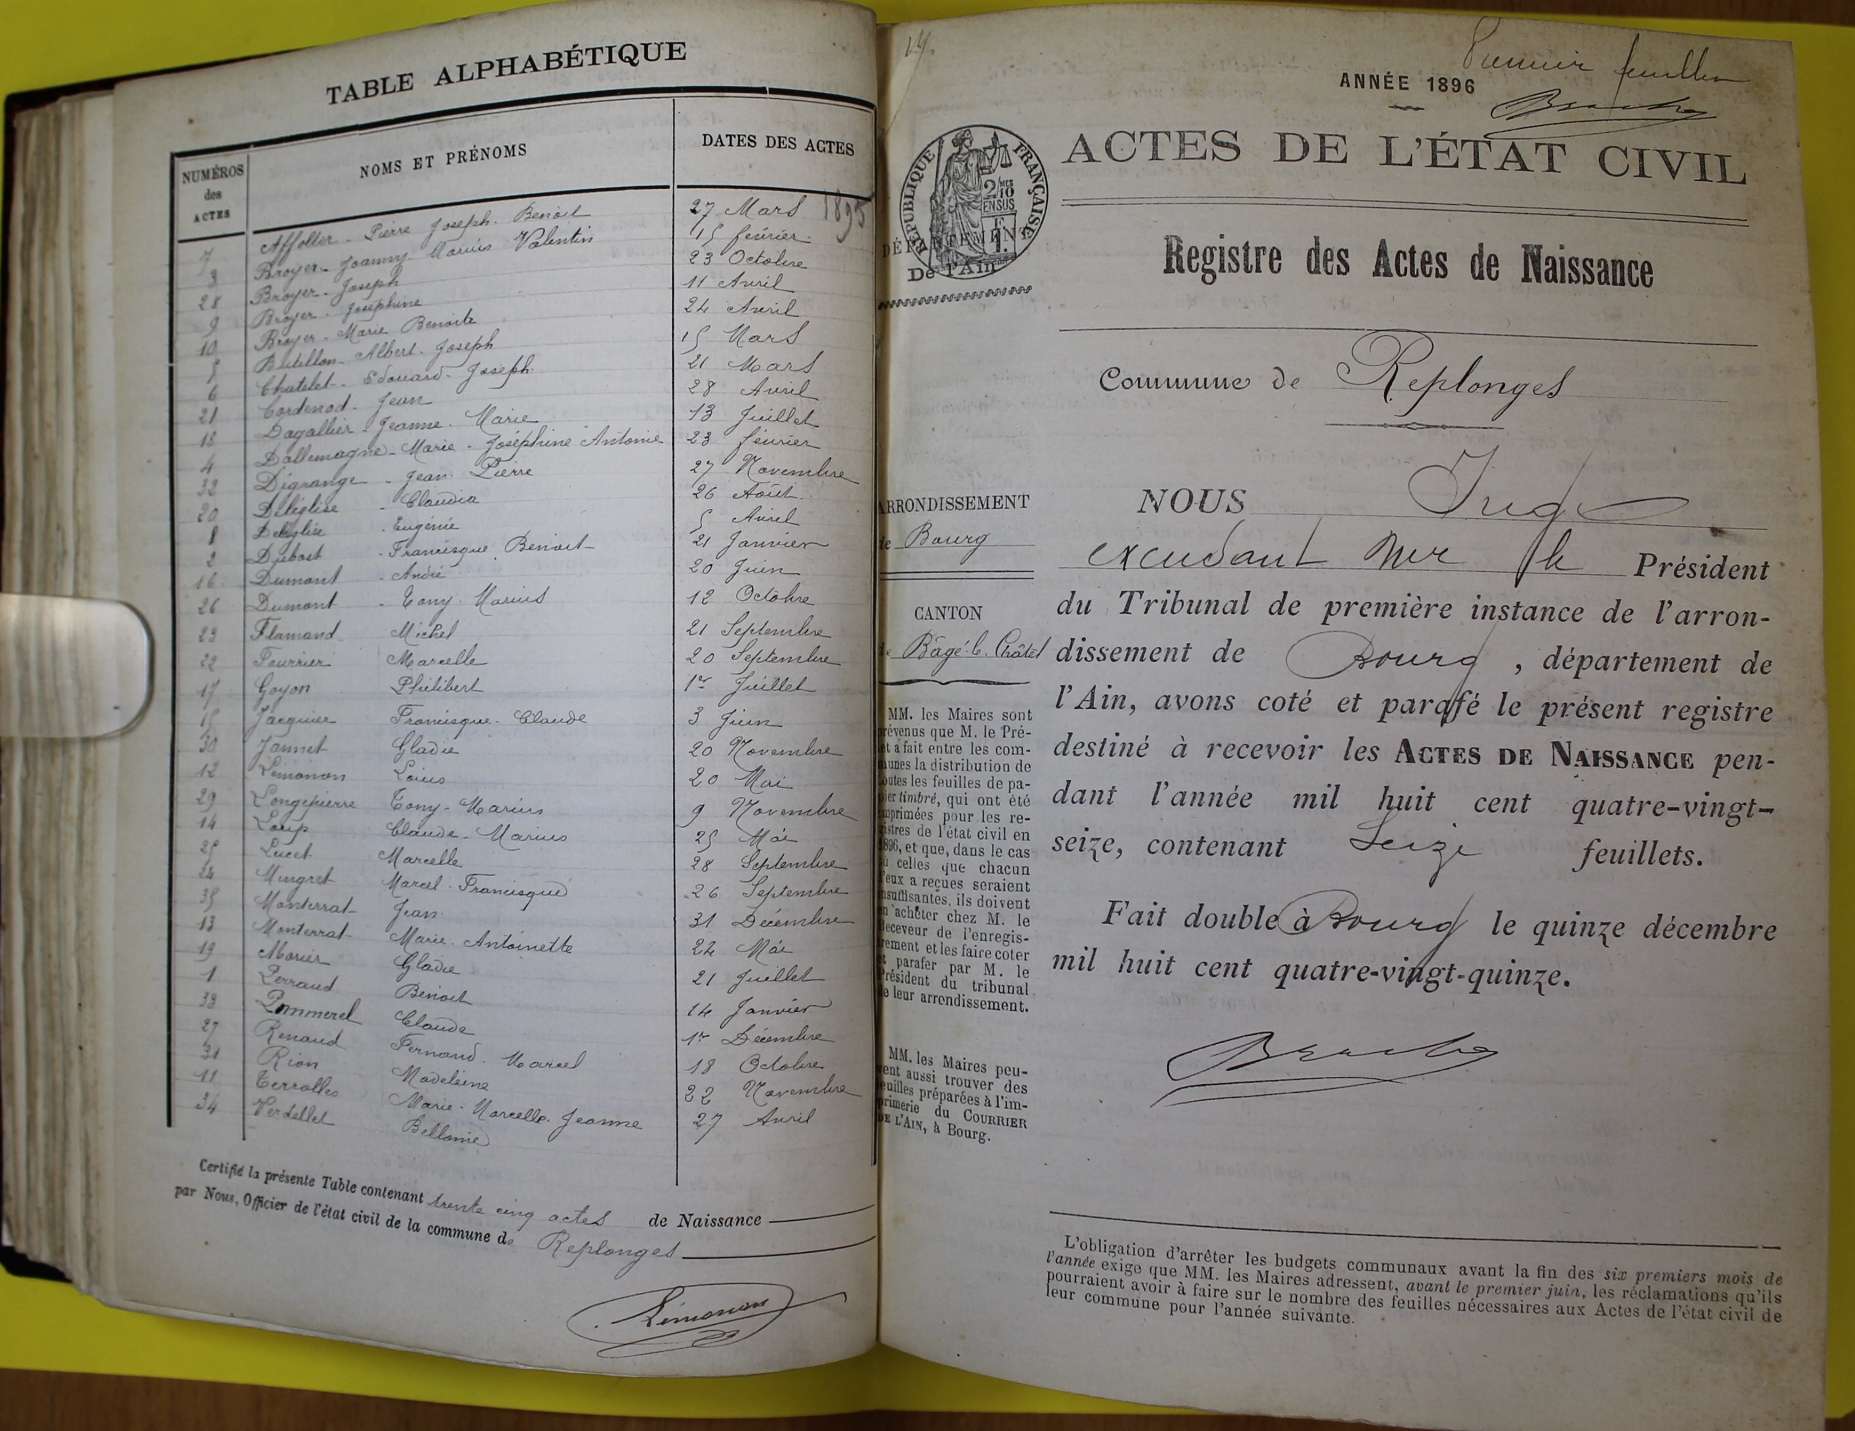 TABLE ALPHABÉTIQUE
NUMÉROS des ACTES
NOMS ET PRÉNOMS
DATES DES ACTES
1895
7 Affolter - Pierre Joseph - Benoit 27 Mars
3 Broyer - Joanny Marius Valentin 15 février
28 Broyer - Joseph 23 Octobre
9 Broyer - Joséphine 11 Avril
10 Broyer - Marie Benoite 24 Avril
5 Butillon - Albert - Joseph 15 Mars
6 Chatelet - Edouard - Joseph 21 Mars
21 Cordenod - Jean 28 Avril
18 Dagallier - Jeanne - Marie 13 Juillet
4 Dallemagne - Marie - Joséphine Antonie 23 février
32 Digrange - Jean Pierre 27 Novembre
20 Deléglise - Claudia 26 Août
8 Deléglise - Eugénie 5 Avril
2 Dubost - Francisque Benoit 21 Janvier
16 Dumont - André 20 Juin
26 Dumont - Tony Marius 12 Octobre
23 Flamand Michel 21 Septembre
22 Fourrier Marcelle 20 Septembre
17 Goyon Philibert 1er Juillet
15 Jacquier Francisque - Claude 3 Juin
30 Jannet Gladie 20 Novembre
12 Lémonon Louis 20 Mai
29 Longepierre Tony - Marius 9 Novembre
14 Loup Claude - Marius 25 Mai
25 Lucet Marcelle 28 Septembre
24 Mingret Marcel - Francisque 26 Septembre
35 Monterrat Jean 31 Décembre
13 Monterrat Marie - Antoinette 22 Mai
19 Morier Gladie 21 Juillet
1 Perraud Benoit 14 Janvier
33 Pommerel Claude 1er Décembre
27 Renaud Fernand - Marcel 18 Octobre
31 Rion Madeleine 22 Novembre
11 Terrolles Marie - Marcelle - Jeanne 27 Avril
34 Verdellet Bellonie
Certifié la présente Table contenant trente cinq actes de Naissance
par Nous, Officier de l'état civil de la commune de Replonges
Lémonon
Premier feuillet
ANNÉE 1896
ACTES DE L'ÉTAT CIVIL
RÉPUBLIQUE FRANÇAISE
2/10 EN SUS
DÉPARTEMENT
De l'Ain
Registre des Actes de Naissance
Commune de Replonges
ARRONDISSEMENT
de Bourg
CANTON
de Bâgé-le-Châtel
MM. les Maires sont
prévenus que M. le Pré-
fet a fait entre les com-
munes la distribution de
toutes les feuilles de pa-
pier timbré, qui ont été
imprimées pour les re-
gistres de l'état civil en
1896, et que, dans le cas
où celles que chacun
d'eux a reçues seraient
insuffisantes, ils doivent
en acheter chez M. le
Receveur de l'enregis-
trement et les faire coter
et parafer par M. le
Président du tribunal
de leur arrondissement.
MM. les Maires peu-
vent aussi trouver des
feuilles préparées à l'im-
primerie du COURRIER
DE L'AIN, à Bourg.
NOUS Juge
Mr le Président
du Tribunal de première instance de l'arron-
dissement de Bourg, département de
l'Ain, avons coté et parafé le présent registre
destiné à recevoir les ACTES DE NAISSANCE pen-
dant l'année mil huit cent quatre-vingt-
seize, contenant Seize feuillets.
Fait double à Bourg le quinze décembre
mil huit cent quatre-vingt-quinze.
L'obligation d'arrêter les budgets communaux avant la fin des six premiers mois de
l'année exige que MM. les Maires adressent, avant le premier juin, les réclamations qu'ils
pourraient avoir à faire sur le nombre des feuilles nécessaires aux Actes de l'état civil de
leur commune pour l'année suivante.